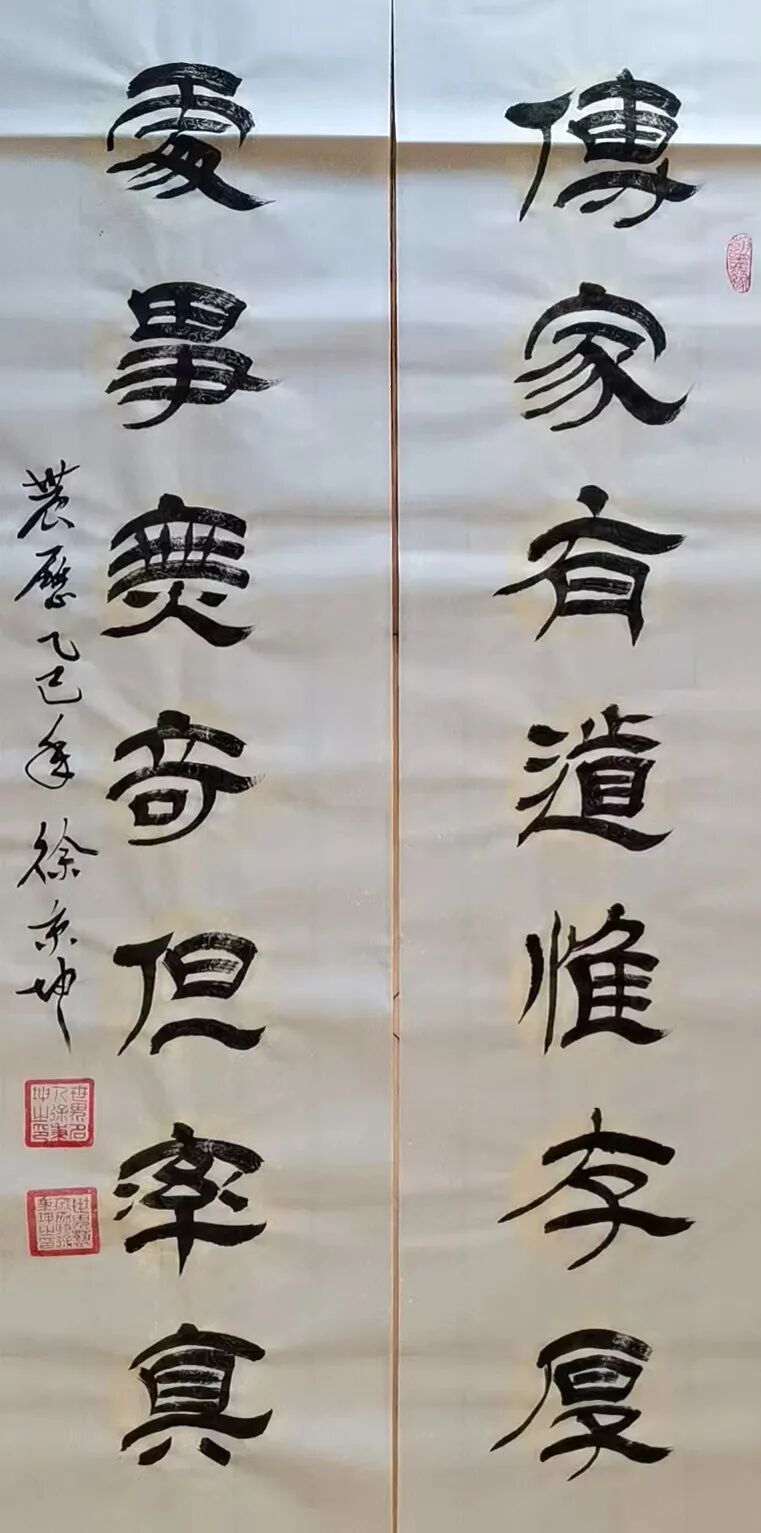 傳家有道惟存厚
處事無奇但率真
農歷乙巳年 徐坤